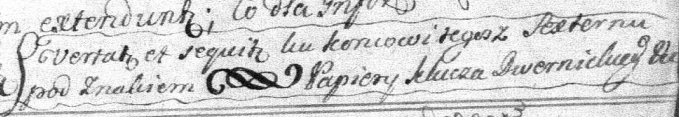 m extendunt; co dla Infor
Vertat et sequit ku koncowi tegosz Sexternu
pod Znakiem Papiery klucza Dwernickieg